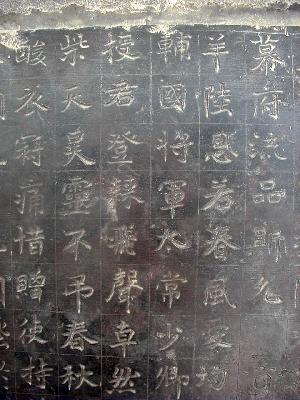 幕府流品斯允
羊陸恩若春風均
輔國將軍太常少卿
授君登飛聲卓然
柴天昊靈不弔春秋
酸衣冠痛惜贈使持